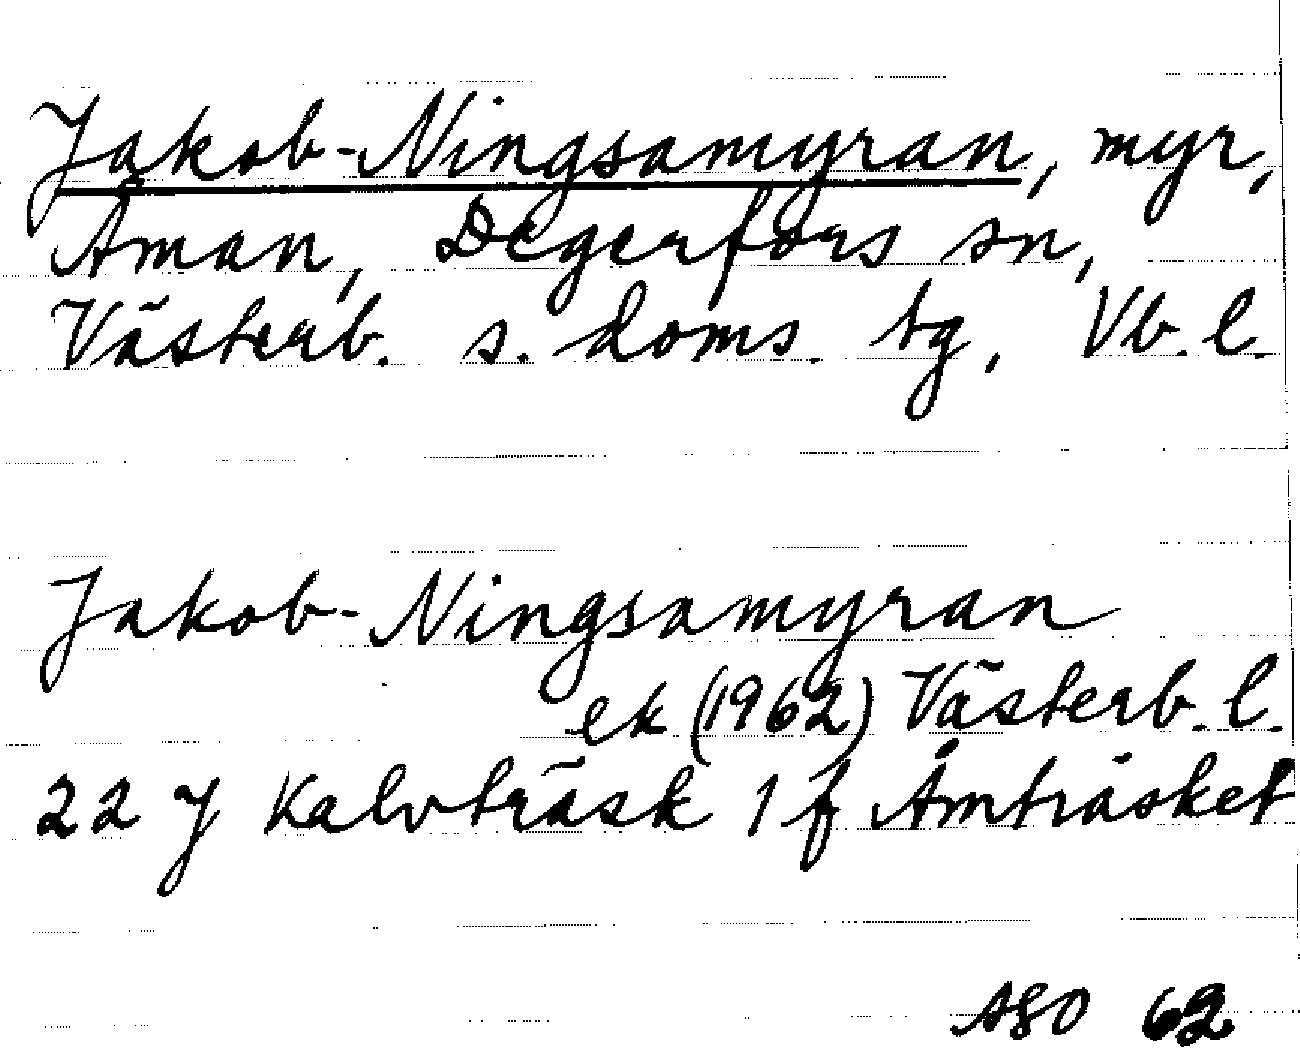 Jakob-Ningsamyran, myr,
Åman, Degerfors sn,
Västerb. s. doms. tg, Vb. l.
Jakob-Ningsamyran
ek (1962) Västerb. l.
22 J Kalvträsk 1 f Åmträsket
ASO 62